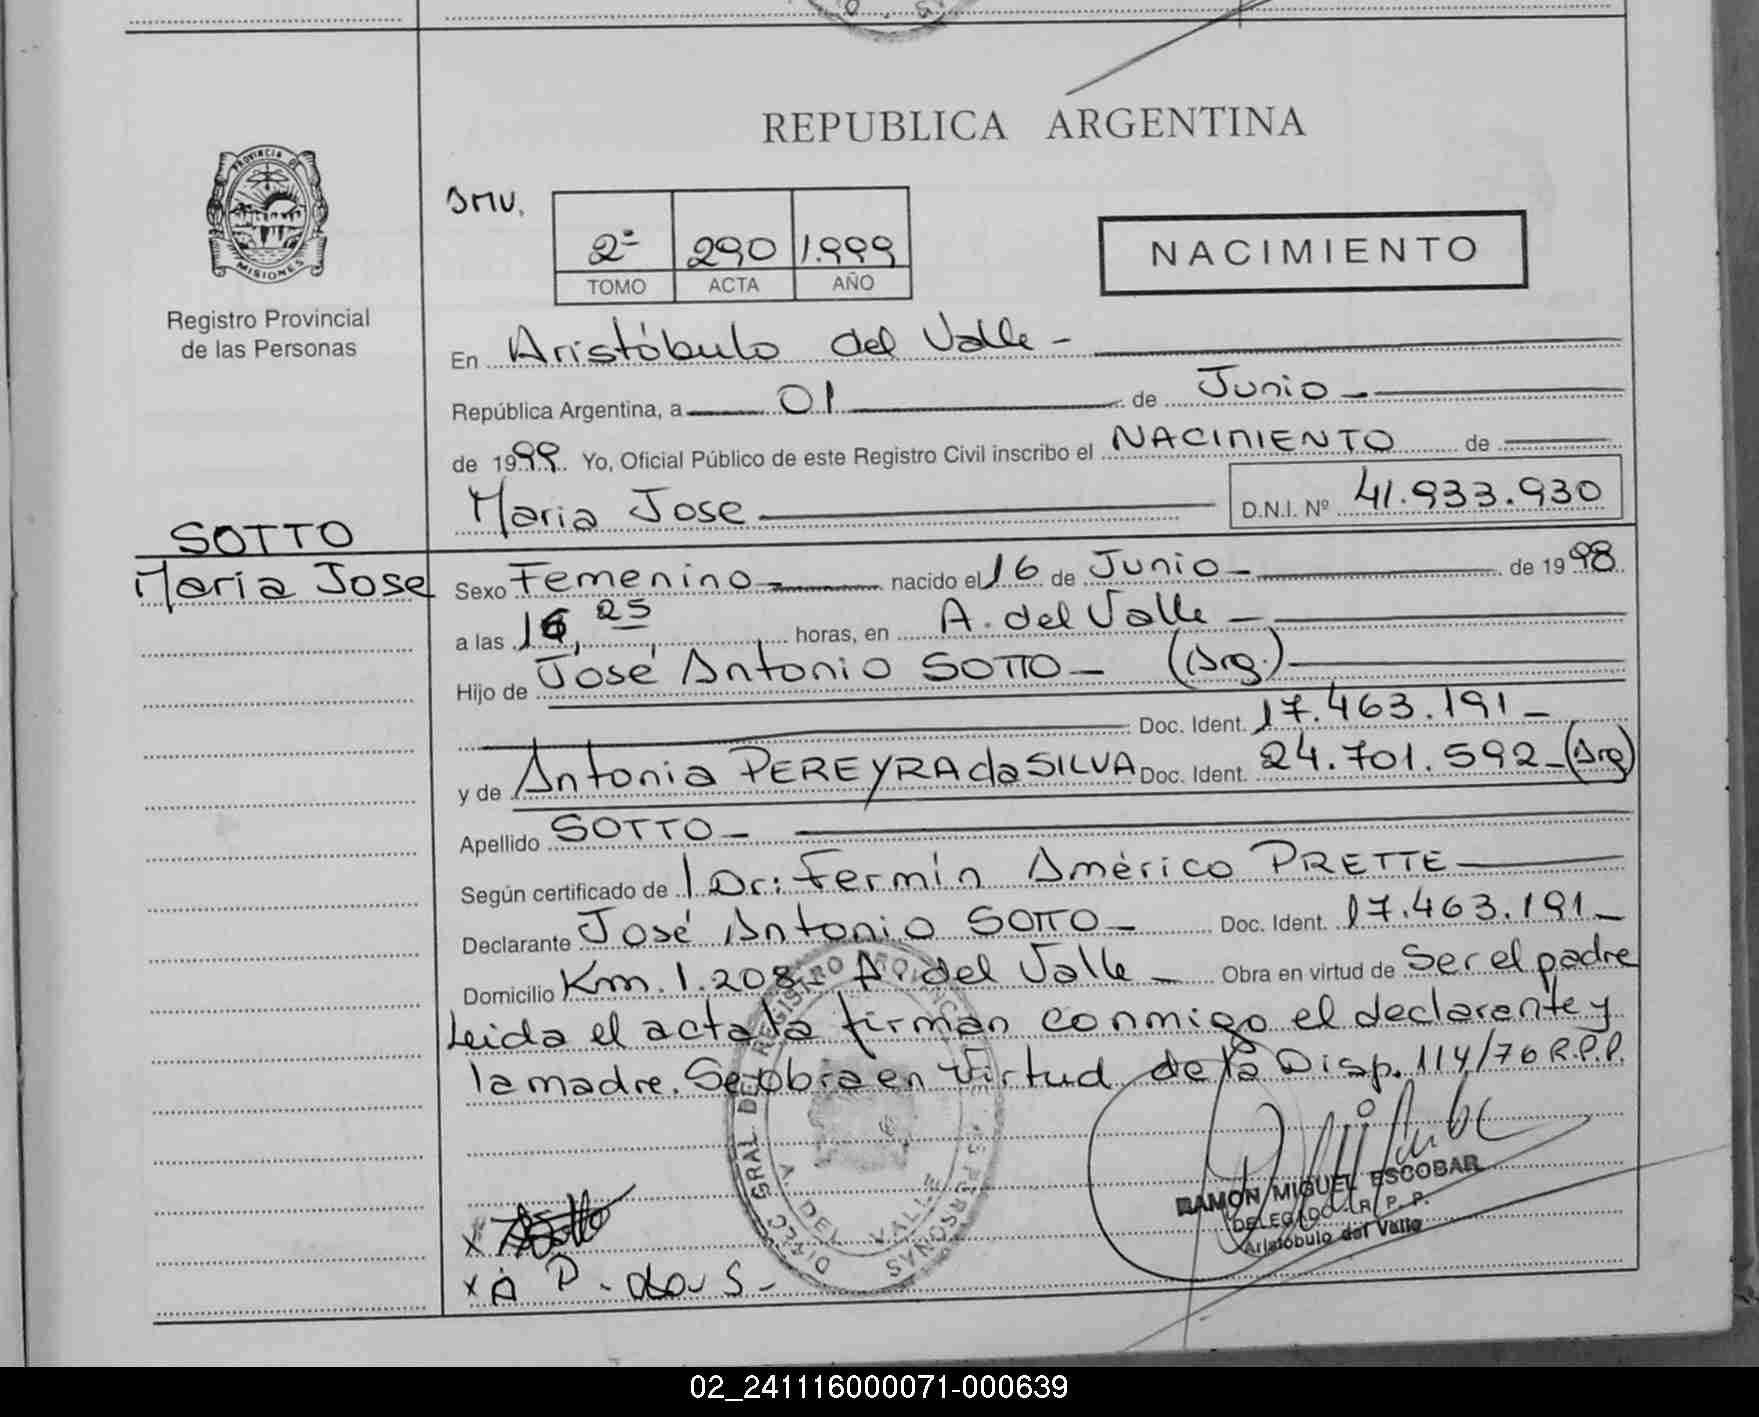 REPUBLICA ARGENTINA
PROVINCIA DE
MISIONES
Registro Provincial
de las Personas
SMV.
2º 290 1.999
TOMO ACTA AÑO
NACIMIENTO
En Aristóbulo del Valle -
República Argentina, a 01 de Junio -
de 1999. Yo, Oficial Público de este Registro Civil inscribo el NACIMIENTO de
Maria Jose D.N.I. Nº 41.933.930
SOTTO
María Jose
Sexo Femenino - nacido el 16 de Junio - de 1998
a las 16, 25 horas, en A. del Valle -
Hijo de José Antonio SOTTO - (Arg.)
Doc. Ident. 17.463.191 -
y de Antonia PEREYRA da SILVA Doc. Ident. 24.701.592 - (Arg)
Apellido SOTTO -
Según certificado de 1 Dr: Fermín Américo PRETTE
Declarante José Antonio SOTTO - Doc. Ident. 17.463.191 -
Domicilio Km. 1.208 Aº del Valle - Obra en virtud de Ser el padre
Leida el acta la firman conmigo el declarante y
la madre. Se obra en virtud de la Disp. 114/76 R.P.P.
DIREC. GRAL DEL REGISTRO PROVINCIAL DE LAS PERSONAS
A. DEL VALLE
RAMON MIGUEL ESCOBAR
DELEGADO R. P. P.
Aristóbulo del Valle
x
x A P. da S -
02_241116000071-000639